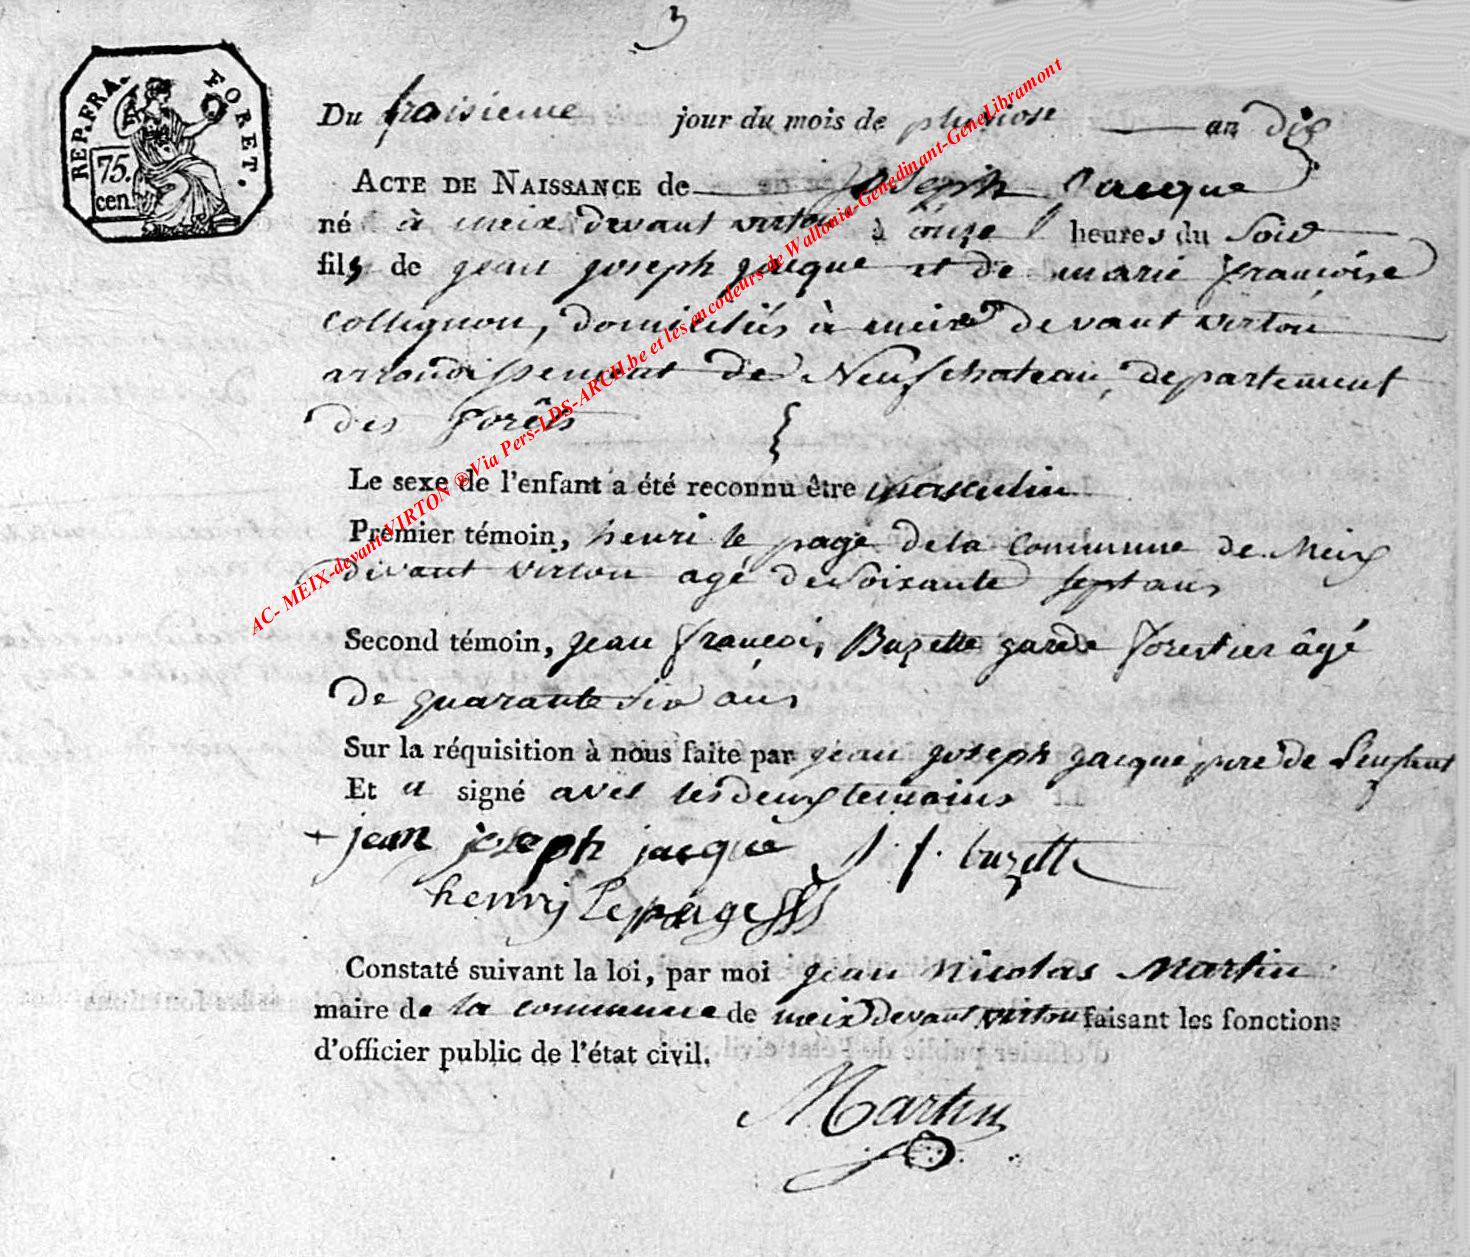 3
REP. FRA. FORET.
75.
cen.
Du troisieme jour du mois de pluviose an dix
ACTE DE NAISSANCE de Joseph Jacque
né à meix devant virton à onze heures du Soir
fils de jean joseph jacque et de marie françoise
Collignon, domiciliés à meix devant virton
arrondissement de Neufchateau, departement
des forêts
Le sexe de l'enfant a été reconnu être masculin
Premier témoin, henri le page de la Commune de Meix
devant virton agé de Soixante Sept ans
Second témoin, jean françois Buzette garde forestier âgé
de quarante Six ans
Sur la réquisition à nous faite par jean joseph jacque pere de L'enfant
Et a signé avec les deux temoins
+ jean joseph jacque J. f. buzette
henry Lepage
Constaté suivant la loi, par moi jean Nicolas Martin
maire de la commune de meix devant virton faisant les fonctions
d'officier public de l'état civil.
Martin
AC- MEIX-devant-VIRTON ® Via Pers-LDS-ARCH.be et les encodeurs de Wallonia-Genedinant-GeneLibramont